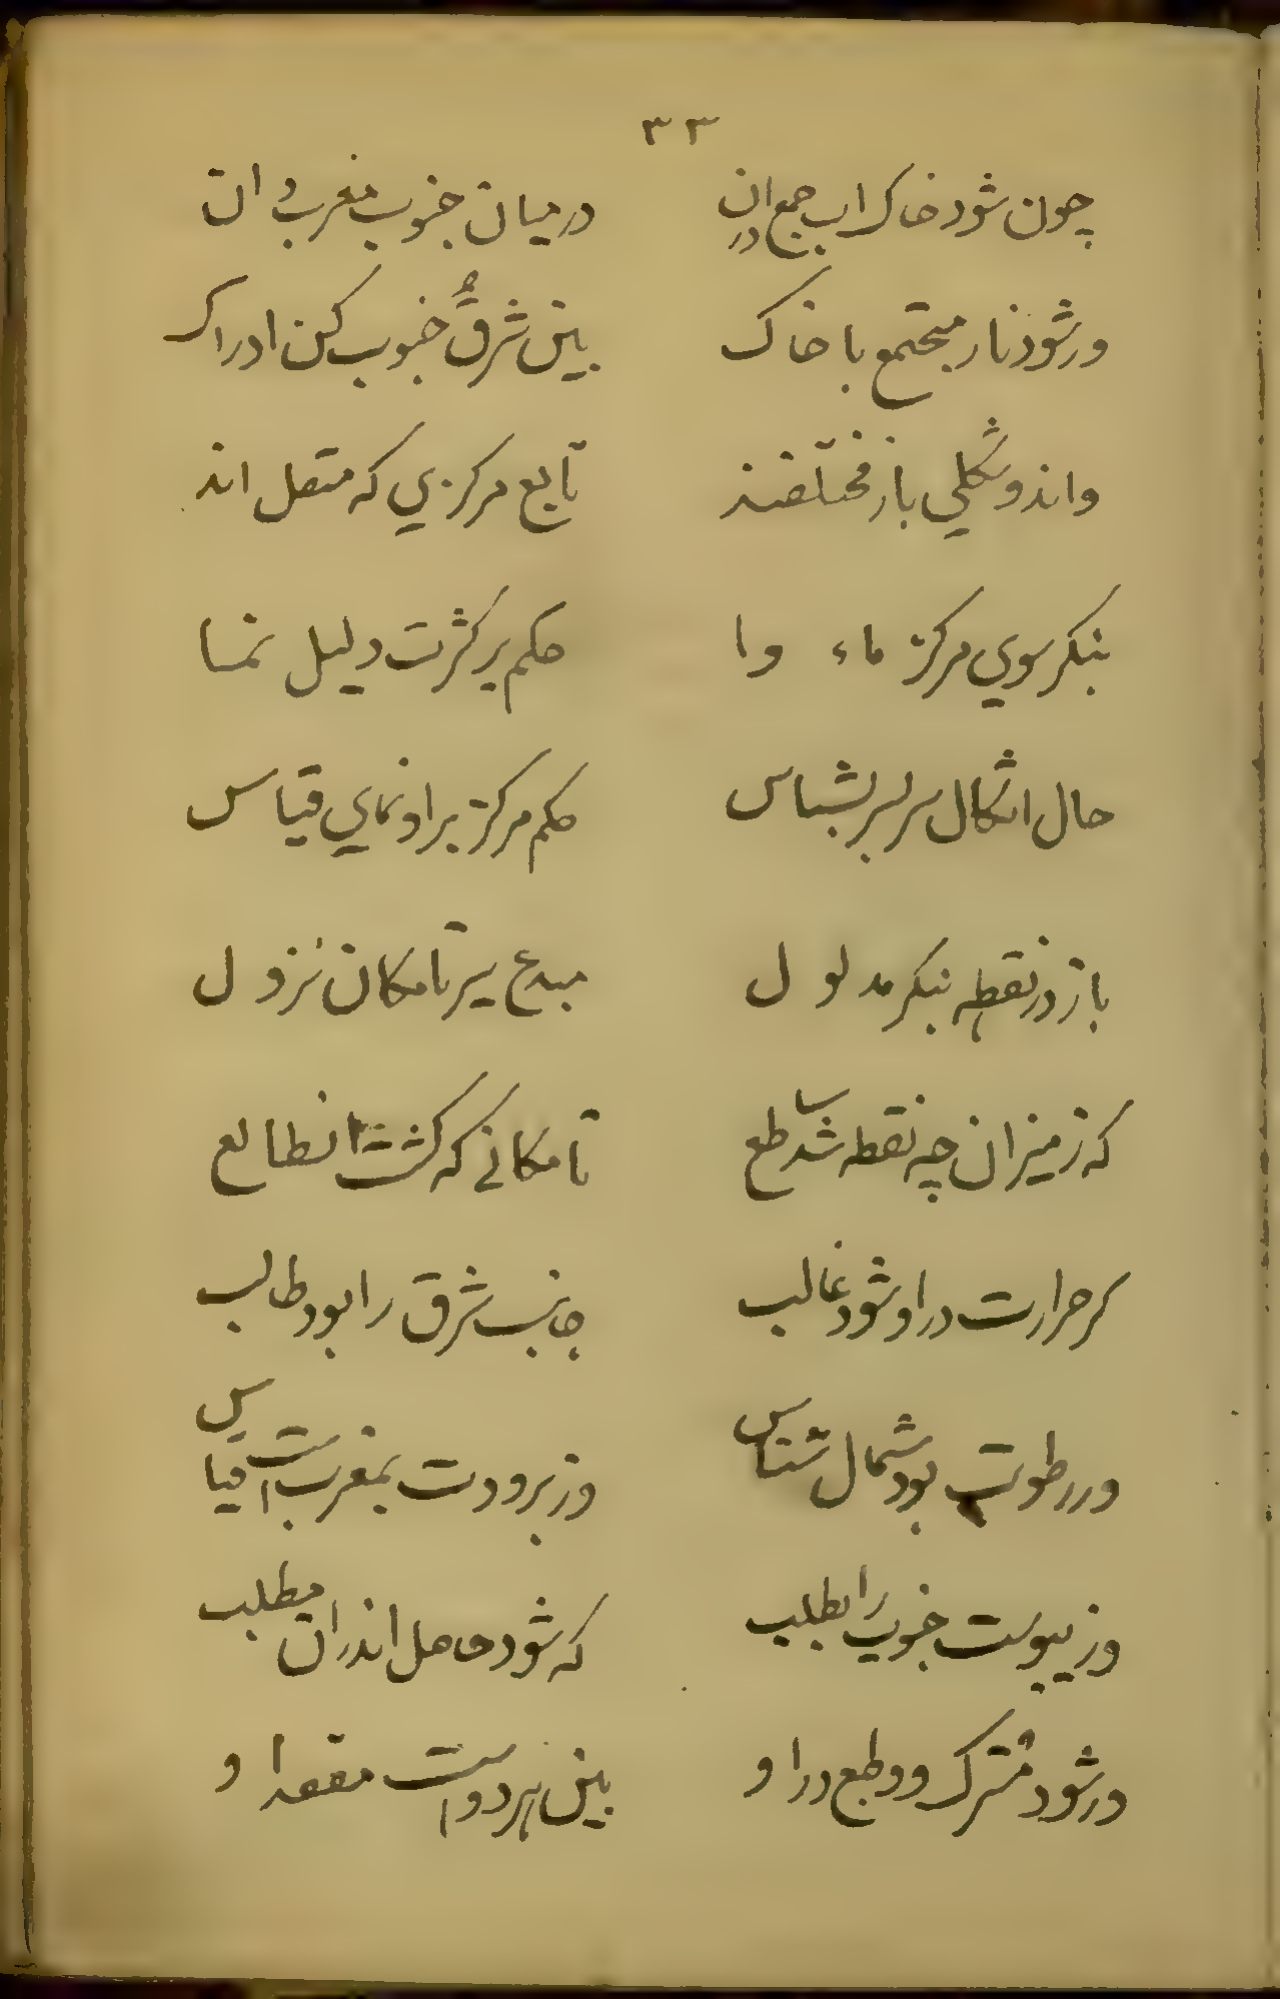 ۳۳
چون شود خاک اب جمع دران درمیان جنوب مغرب و ان
ور شود نار مجتمع با خاک بین شرق و جنوب کن ادراک
واند و شکلي باز مختلفند تابع مرکزي که متصل اند
بنکر سوي مرکز ماء وا حکم بر کثرت دلیل نما
حال اشکال سر بسر بشناس حکم مرکز براو نماي قیاس
باز در نقطه بنکر مدلول مبدع سیر تا مکان نزول
که ز میزان چه نقطه شد ساطع تا مکانے که کشت انطالع
کر حرارت در او شود غالب جانب شرق را بود طالب
ور رطوبت بود شمال شناس وز برودت بمغرب است قیاس
وز یبوست جنوب را بطلب که شود حاصل اندران مطلب
ور شود مشترک دو طبع در او بین هر دو است مقصد او